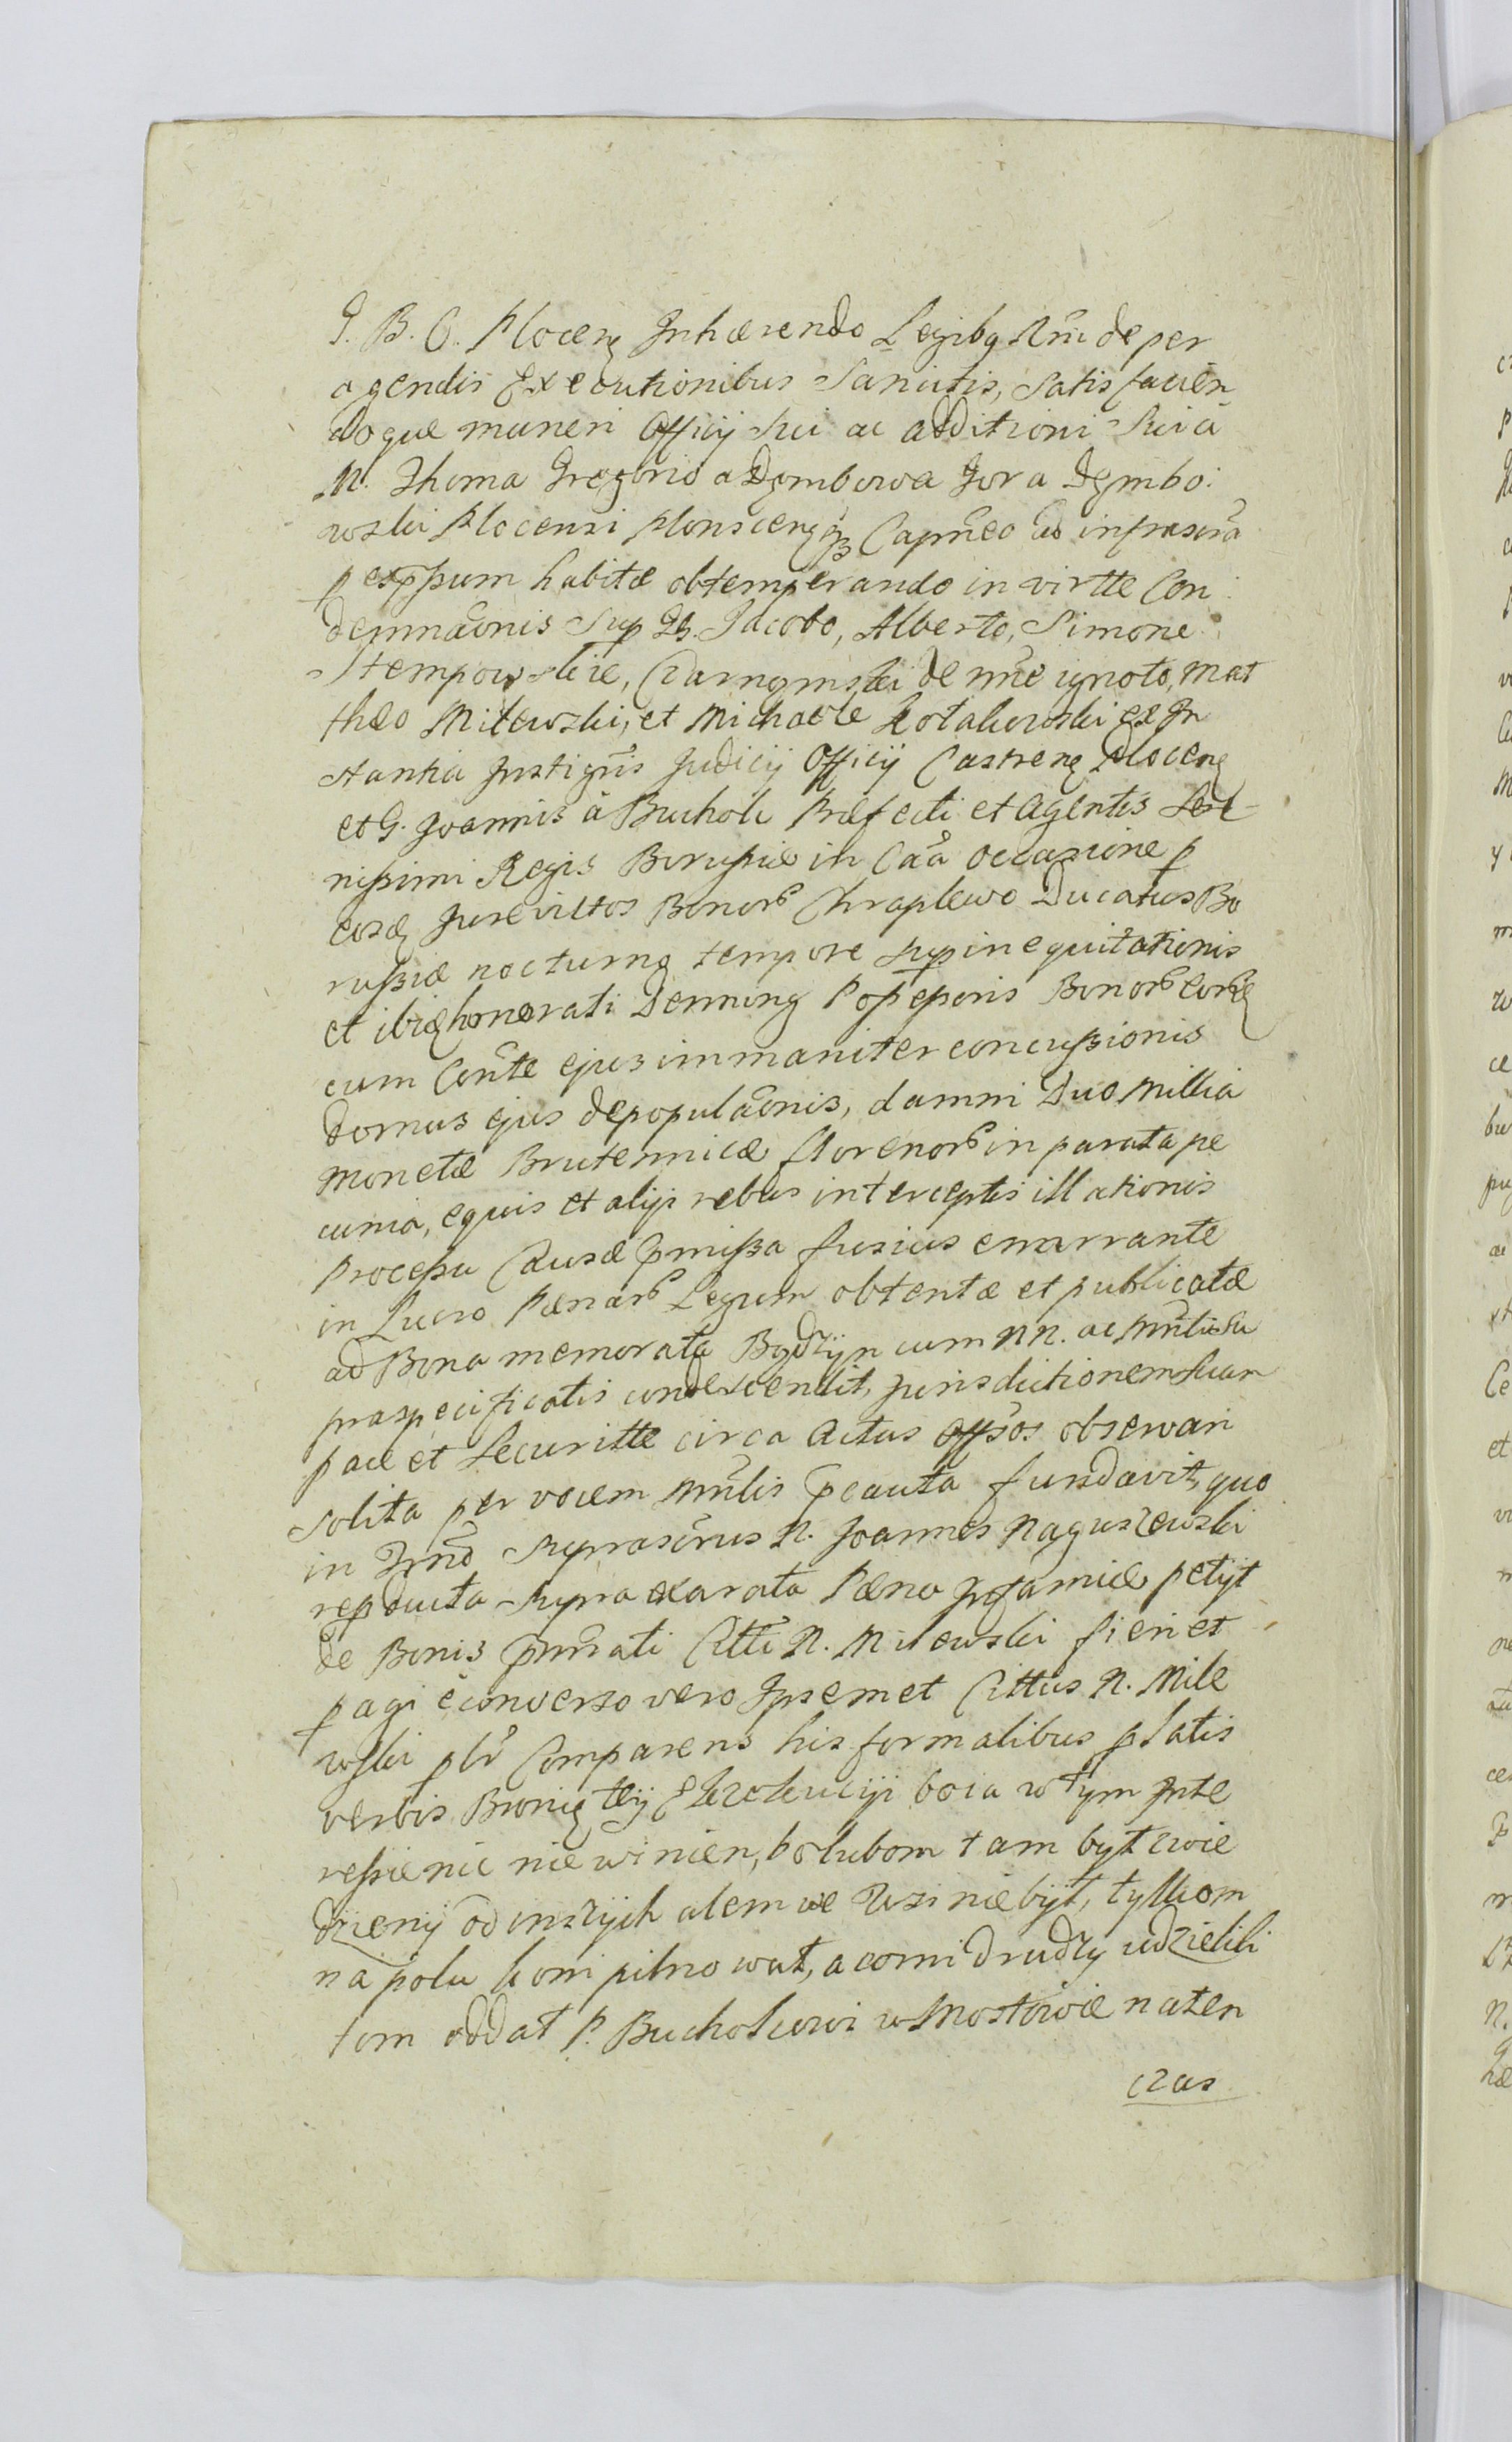 J. B. C. Plocens Inhærendo Legibq Rñi de per
agendis Executionibus Sancitis, Satisfacien
doque muneri Officij sui ac additioni sui a
M. Thoma Gregorio a Dgmbowa Gora Dgmbo:
wski Plocensi Plonscensqz Capneo ad infrascra
pexpssum habitæ obtemperando in virtte Con
demnaonis Sup Gb. Jacobo, Alberto, Simone
Stempowskie, Czarnomski de nñe ignoto, Mat
thæo Milewski, et Michaele Kotakowski ex In
stantia Instigñis Judicij Officij Castrens Plocens
et G. Joannis à Bucholc Præfecti et Agentis Sere
nißimi Regis Borußiæ in Caã occasione p
eosdę Jurevictos Bonorb Chraplewo Ducatus Bo
rußiæ nocturno tempore supinequitationis
et ibidę honorati Denning Poßeßoris Bonorb eorñdę
cum Conte ejus immaniter concußionis
domus ejus depopulãonis, damni Duo Millia
Monetæ Brutennicæ florenorb in parata pe
cunia, equis et alijs rebus interceptis illationis
Proceßu Causæ pmißa fusius enarrante
in Lucro Pænarb Legum obtentæ et publicatæ
ad Bona memorata Bądzyn cum NN. ac Mñlisu
praspecificatis condescendit, Jurisdictionem suam
pace et Securitte circa Actus Offsos observari
solita per vocem Mñlis pcauta fundavit, quo
in Trño Suprascrius N. Joannes Naguszewski
repducta supra exarata Pæna Infamiæ petijt
de Bonis pmñati Citti N. Milewski fieri et
pagi è converso vero Ipsemet Cittus N. Mile
wski plr Comparens his formalibus platis
verbis Bronię teij Exekucyji boia w tym Inte
reßie nic nie winien, bo lubom tam był zwie
dzieny od inszijch alem we Wsi niebył, tylkom
na polu koni pilnował, a comi drudzy udzielili
tom oddał P. Bucholcowi w Mostowie naten
czas